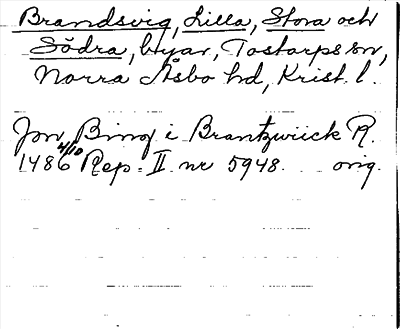 Brandsvig, Lilla, Stora och
Södra, byar, Tostarps sn,
Norra Åsbo hd, Krist. l.
Jon Bing i Brantzwiick R.
1486 4/10 Rep. II nr 5948. orig.